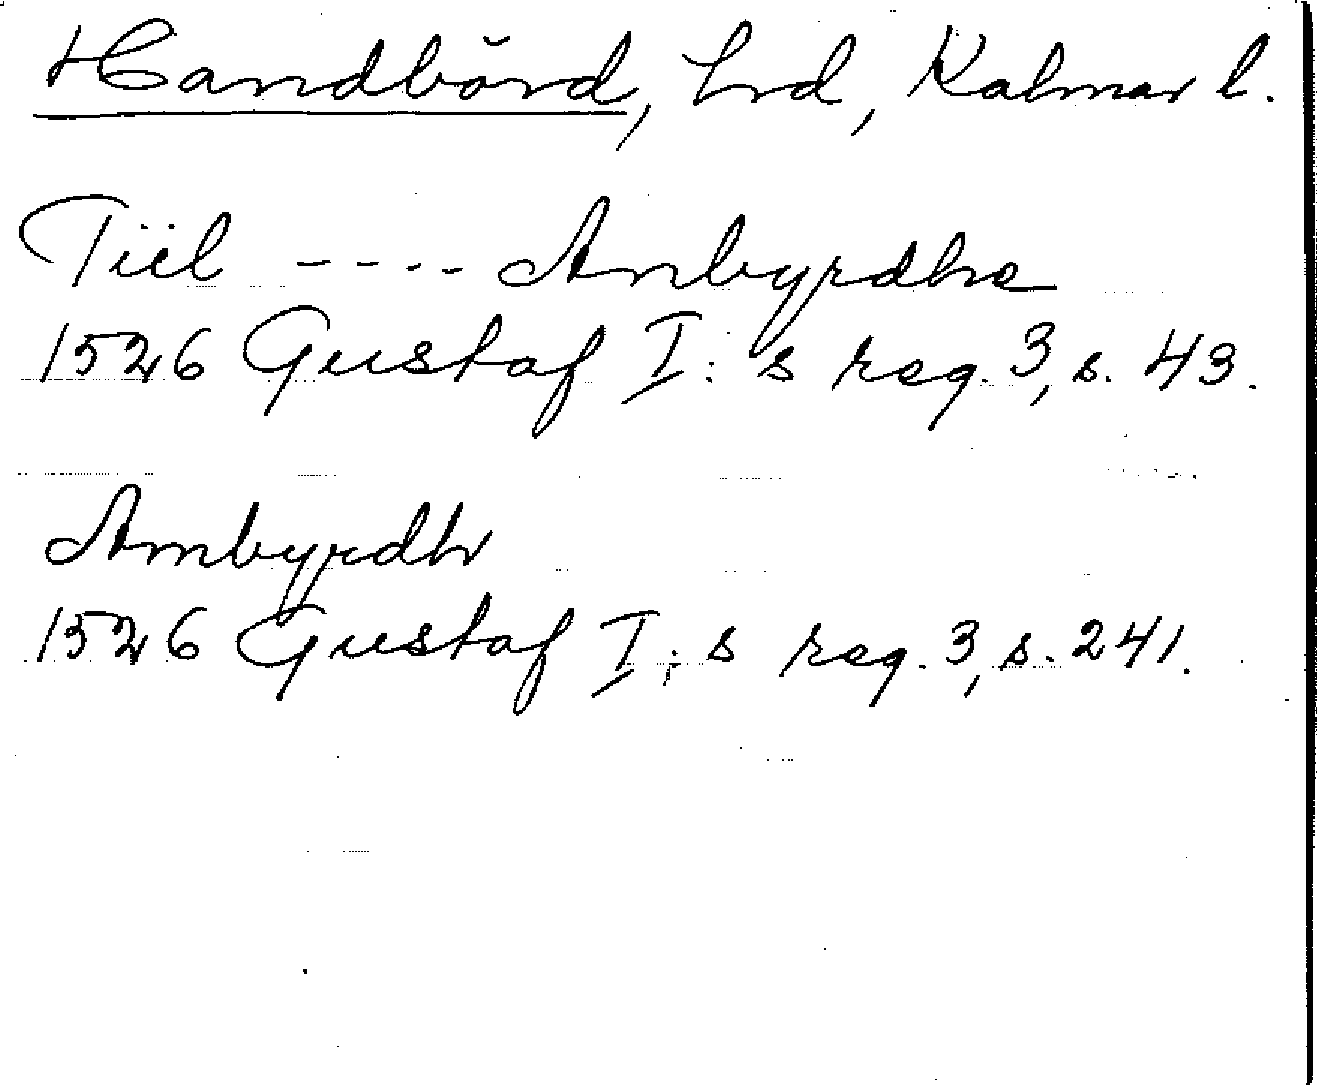 Handbörd, hrd, Kalmar l.
Tiil ---- Anbyrdhe
1526 Gustaf I:s reg. 3, s. 43.
Ambyrdh
1526 Gustaf I:s reg. 3, s. 241.